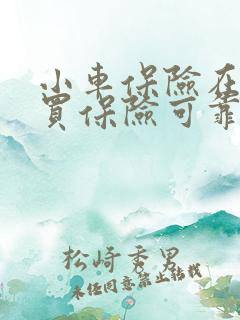 小車保險在
買保險可靠
松崎秀男
未经同意禁止转载